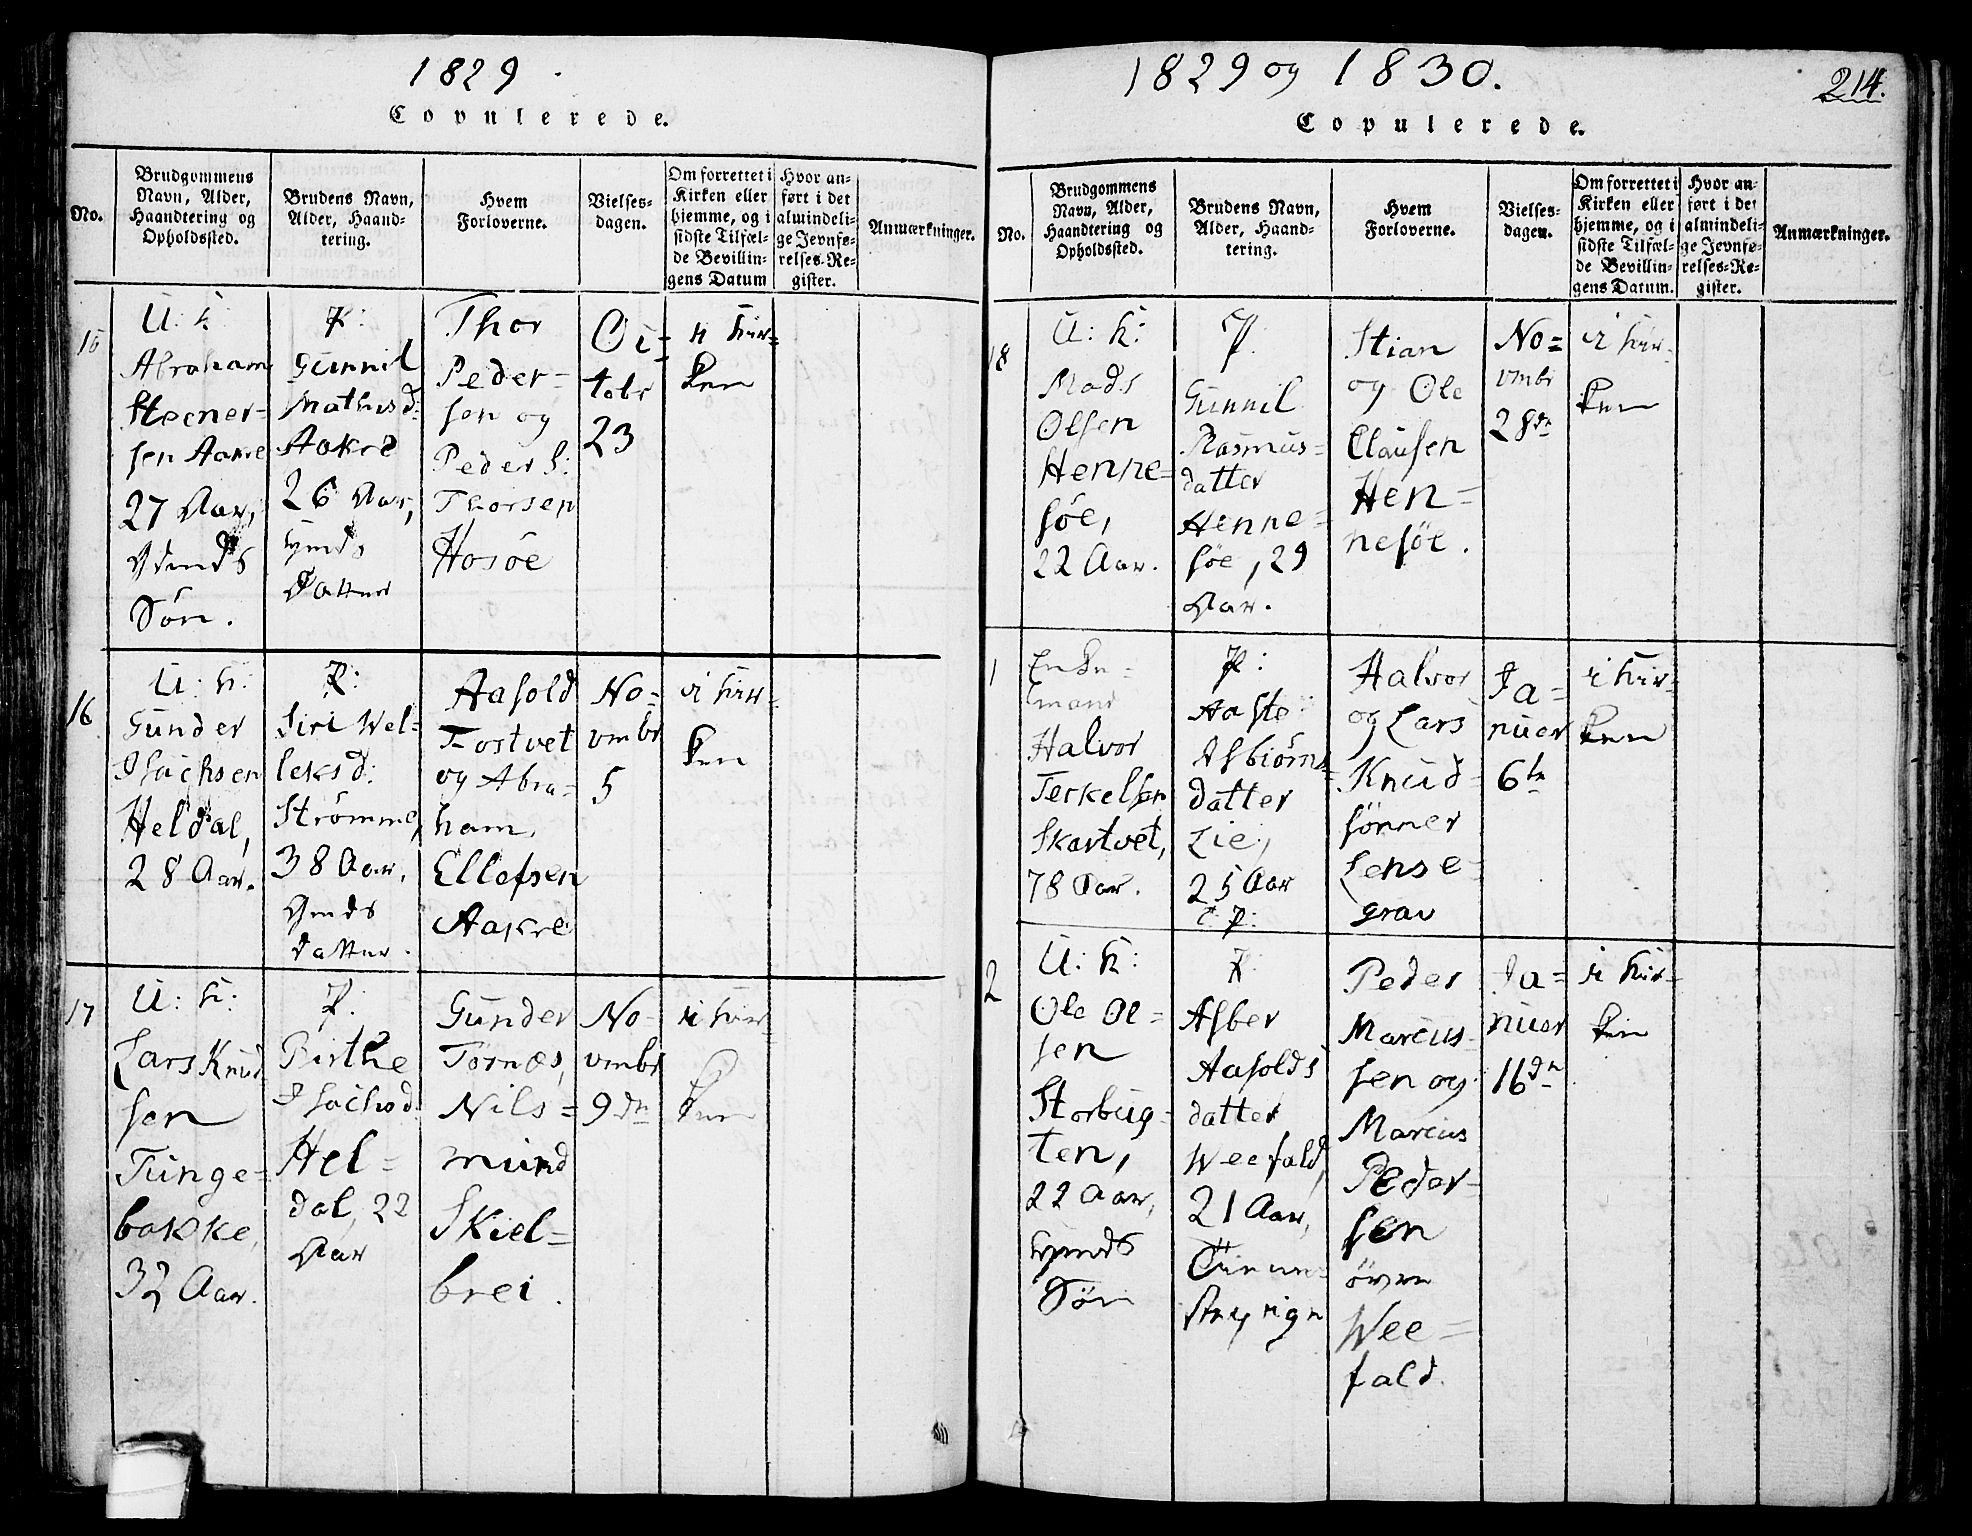 1829
Copulerede.
No.
Brudgommens
Navn, Alder,
Haandtering og
Opholdssted.
Brudens Navn,
Alder, Haand-
tering.
Hvem
Forloverne.
Vielses-
dagen.
Om forrettet i
Kirken eller
hjemme, og i
sidste Tilfæl-
de Bevillin-
gens Datum
Hvor an-
ført i det
almindeli-
ge Jevnfø-
relses-Re-
gister.
Anmærkninger.
15
U: K:
Abraham
Steener-
sen Aakre
27 Aar,
Sön.
P:
Gunnil
Mathisd:
Aakre
26 Aar,
Datter
Thor
Peder-
sen og
Peder S:
Thorsen
Hosöe
Oc-
tobr
23
i Kir-
ken
16
U: K:
Gunder
Isachsen
Heldal,
28 Aar.
P:
Siri Wel-
leksd:
Strömme,
38 Aar,
Datter.
Aasold
Tostvet
og Abra-
ham
Ellefsen
Aakre
No-
vmbr
5
i Kir-
ken
17
U: K:
Lars Knud
sen
Tinge-
bakke,
32 Aar.
P:
Birthe
Isachsd:
Hel-
dal, 22
Aar
Gunder
Tornæs,
Nils-
mund
Skiel-
brei.
No-
vmbr
9de
i Kir-
ken
1829 og 1830.
214.
Copulerede.
No.
Brudgommens
Navn, Alder,
Haandtering og
Opholdssted.
Brudens Navn,
Alder, Haand-
tering.
Hvem
Forloverne.
Vielses-
dagen.
Om forrettet i
Kirken eller
hjemme, og i
sidste Tilfæl-
de Bevillin-
gens Datum.
Hvor an-
ført i det
almindeli-
ge Jevnfø-
relses-Re-
gister.
Anmærkninger.
18
U: K:
Mads
Olsen
Henne-
söe,
22 Aar.
P.
Gunnil
Rasmus-
datter
Henne-
söe, 29
Aar.
Stian
og Ole
Clausen
Hen-
nesöe.
No-
vmbr
28de
i Kir-
ken
1
Enke-
mand
Halvor
Terkelsen
Skartvet,
78 Aar.
P:
Aaste
Asbiörns-
datter
Lie,
25 Aar
Halvor
og Lars
Knud-
sönner
Lense-
grav
Ja-
nuar
6te
i Kir-
ken
2
U: K:
Ole Ol-
sen
Storbug-
ten,
22 Aar,
Sön
P:
Asber
Aasolds
datter
Weefald,
21 Aar,
Peder
Marcus-
sen og
Marcus
Peder-
sen
övre
Wee-
fald.
Ja-
nuar
16de
i Kir-
ken